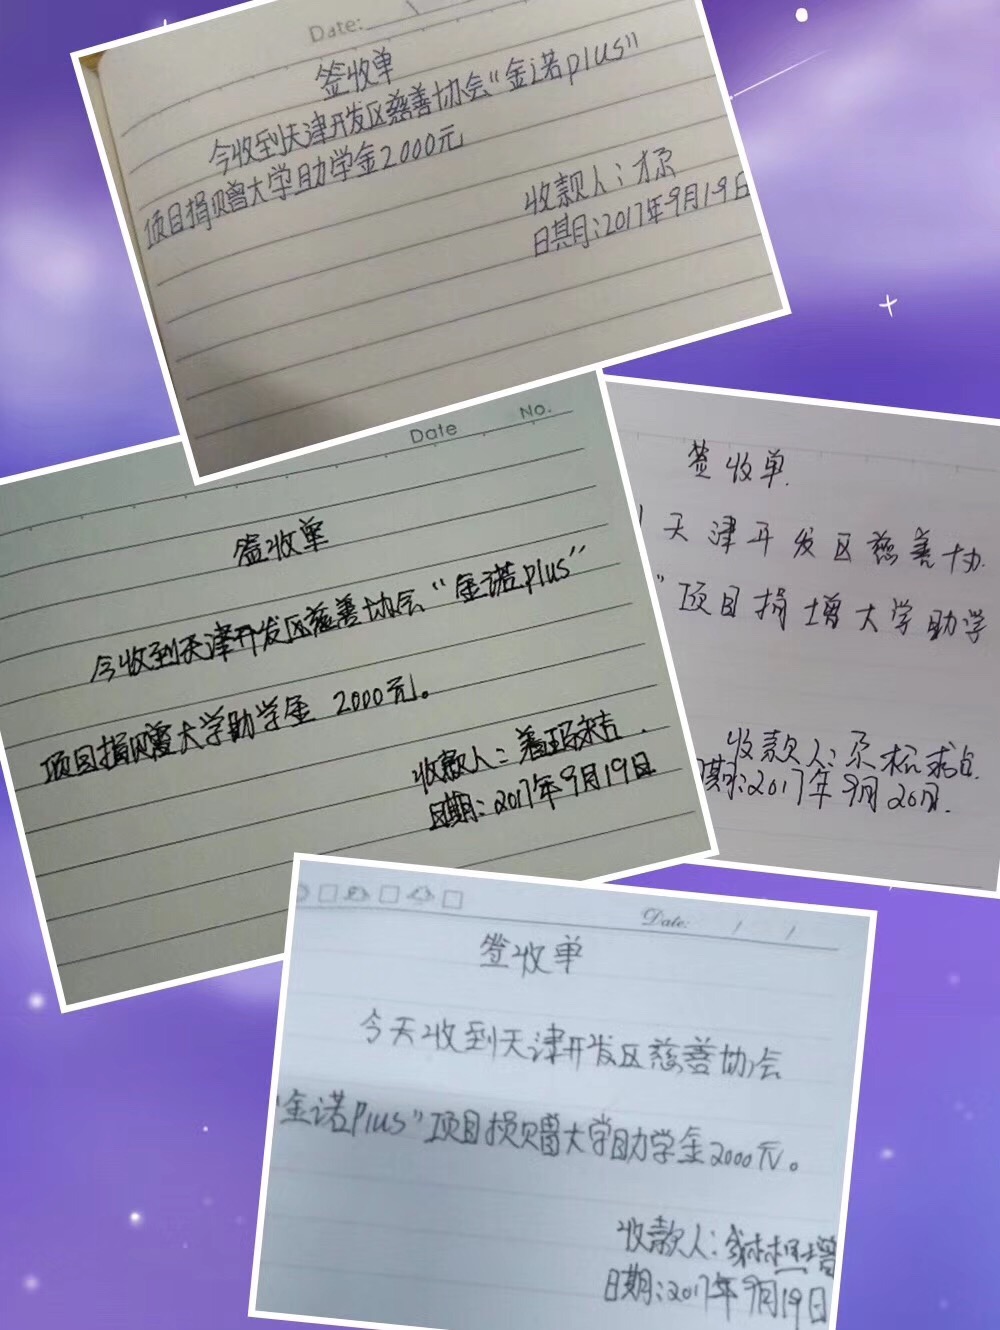 Date:
签收单
今收到天津开发区慈善协会“金诺plus”
项目捐赠大学助学金2000元
收款人：才
日期：2017年9月19日
Date No.
签收单
今收到天津开发区慈善协会“金诺plus”
项目捐赠大学助学金 2000元。
收款人：
日期：2017年9月19日
签收单.
天津开发区慈善协
”项目捐增大学助学
收款人：
期：2017年9月20日.
Date: / /
签收单
今天收到天津开发区慈善协会
“金诺Plus”项目捐赠大学助学金2000元。
收款人：
日期：2017年9月19日